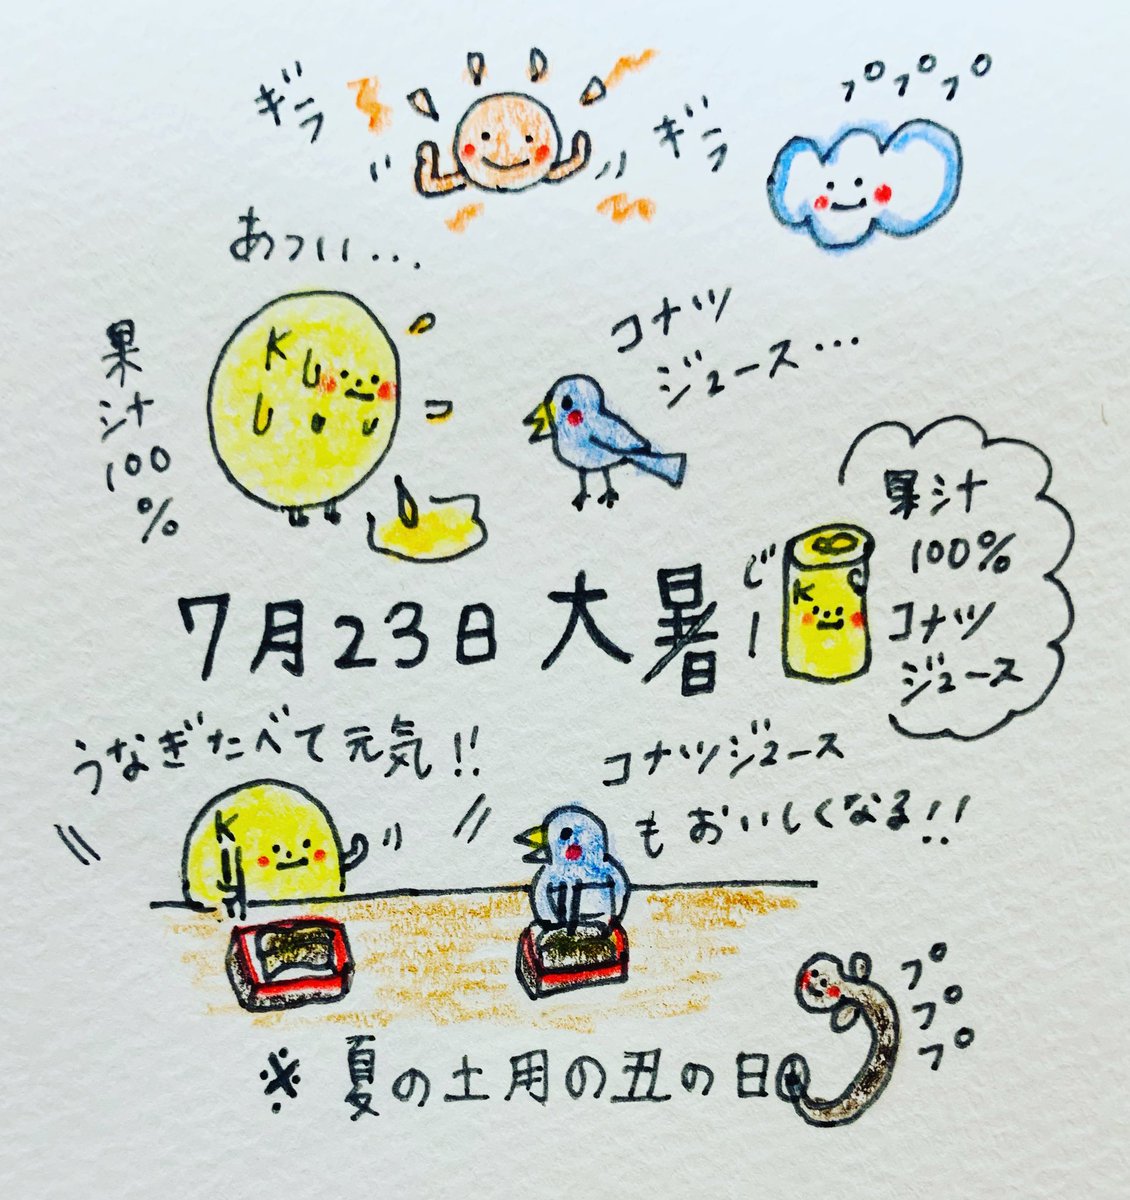 ギラ
ギラ
プププ
あつい...
果汁100%
K
コナツ
ジュース...
7月23日 大暑
じー
K
果汁
100%
コナツ
ジュース
うなぎたべて元気!!
コナツジュース
もおいしくなる!!
K
プププ
※夏の土用の丑の日